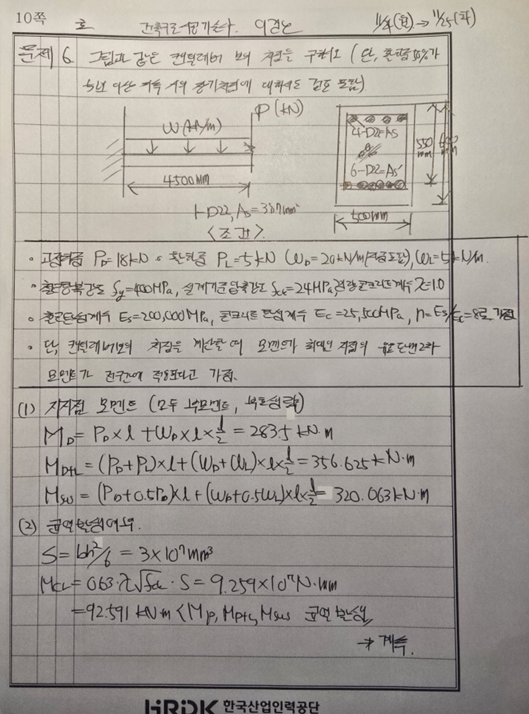 10쪽 호 11/24(월) → 11/25(화)
문제 6. 그림과 같은 캔틸레버 보의 처짐을 구하시오 (단, 활하중 50%가
5년 이상 지속 시의 장기처짐에 대하여도 검토 포함)
P(kN)
W(kN/m)
4500mm
4-D22=As
6-D22=As'
550mm
500mm
1-D22, As=387mm²
<조건>
• 고정하중 PD=18kN 활하중 PL=5kN (WD=20kN/m(자중포함)), (WL=5kN/m)
• 철근항복강도 fy=400MPa, 설계기준압축강도 fck=24MPa, 경량콘크리트계수 λ=1.0
• 철근탄성계수 Es=200,000MPa, 콘크리트탄성계수 Ec=25,500MPa, n=Es/Ec=8로 가정
• 단, 캔틸레버보의 처짐을 계산할 때 모멘트가 최대인 지점의 유효단면2차
모멘트가 전구간에 적용된다고 가정.
(1) 지지점 모멘트 (모두 부모멘트, 부호생략)
MD = PD×l + WD×l×l/2 = 283.5 kN·m
MD+L = (PD+PL)×l + (WD+WL)×l×l/2 = 356.625 kN·m
Msus = (PD+0.5PD)×l+(WD+0.5WL)×l×l/2 = 320.063kN·m
(2) 균열발생여부.
S = bh²/6 = 3×10⁷mm³
Mcr = 0.63·λ√fck · S = 9.259×10⁷N·mm
=92.591 kN·m < MD, MD+L, Msus 균열 발생
→ 계속.
HRDK 한국산업인력공단